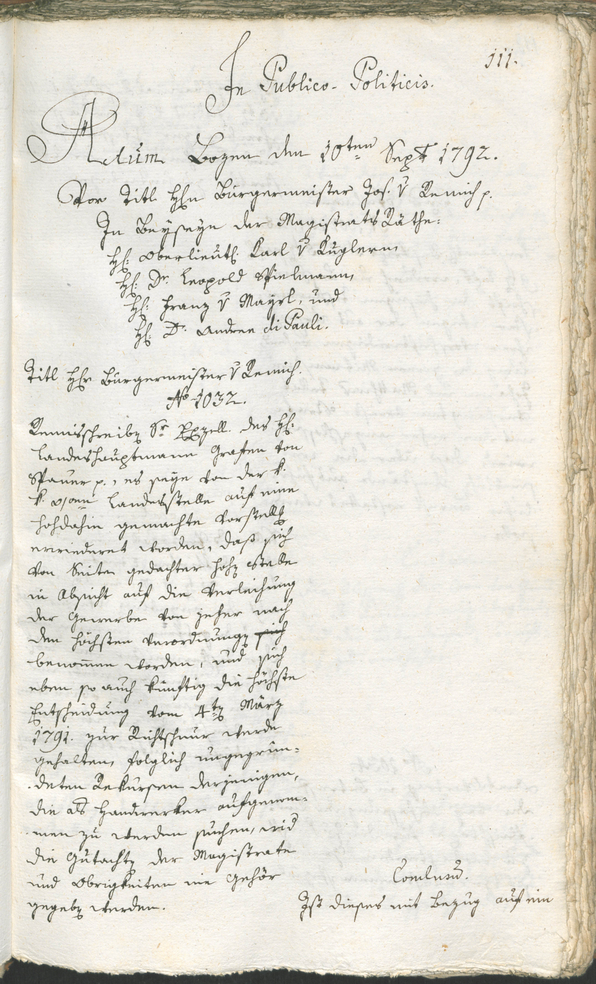 111.
In Publico-Politicis.
Actum Bozen den 10ten Sept. 1792.
Vor Titl Hhn Bürgermeister Jos. v Remich p.
In Beyseyn der Magistrats Räthe:
Hh: Oberlieut. Karl v Kuglern,
Hh: Dr. Leopold Spielmann,
Hh: Franz v Mayrl, und
Hh: Dr. Andree di Pauli.
Titl Hhr Bürgermeister v Remich.
No 1032.
Remisschreiben Sr Exzell. des Hh:
Landeshauptmann Grafen von
Spauer p., es seye von der k.
k. Landesstelle auf eine
hohdahin gemachte Vorstellg
erwiederet worden, daß sich
von Seiten gedachter hohen Stelle
in Absicht auf die Verleihung
der Gewerbe von jeher nach
den höchsten Verordnungen sich
benommen worden, und sich
eben so auch künftig die höchste
Entscheidung vom 4ten März
1791. zur Richtschnur werde
gehalten, folglich ungegrün-
deten Rekursen derjenigen,
die als Handwerker aufgenom-
men zu werden suchen, wid
die Gutachten der Magistrate
und Obrigkeiten nie Gehör
gegeben werden.
Conclusum.
Ist dieses mit Bezug auf ein